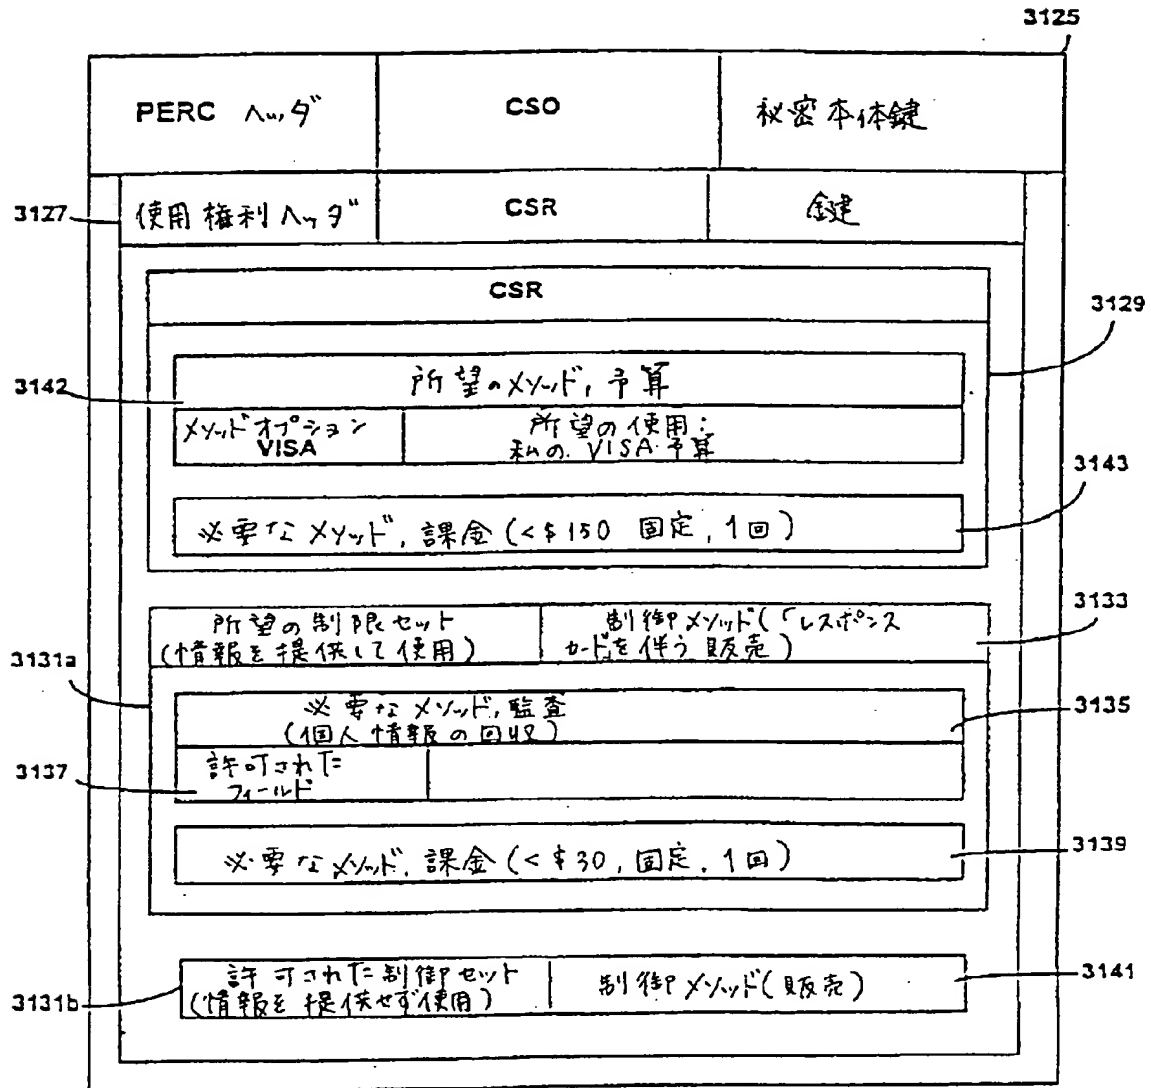 3125
PERC ヘッダ
CSO
秘密本体鍵
3127
使用権利ヘッダ
CSR
鍵
CSR
3129
3142
所望のメソッド, 予算
メソッドオプション
VISA
所望の使用:
私の VISA 予算
3143
必要なメソッド, 課金 (<$150 固定, 1回)
3133
3131a
所望の制限セット
(情報を提供して使用)
制御メソッド(「レスポンス
カード」を伴う販売)
3135
必要なメソッド, 監査
(個人情報の回収)
3137
許可された
フィールド
3139
必要なメソッド, 課金 (<$30, 固定, 1回)
3131b
許可された制御セット
(情報を提供せず使用)
制御メソッド(販売)
3141